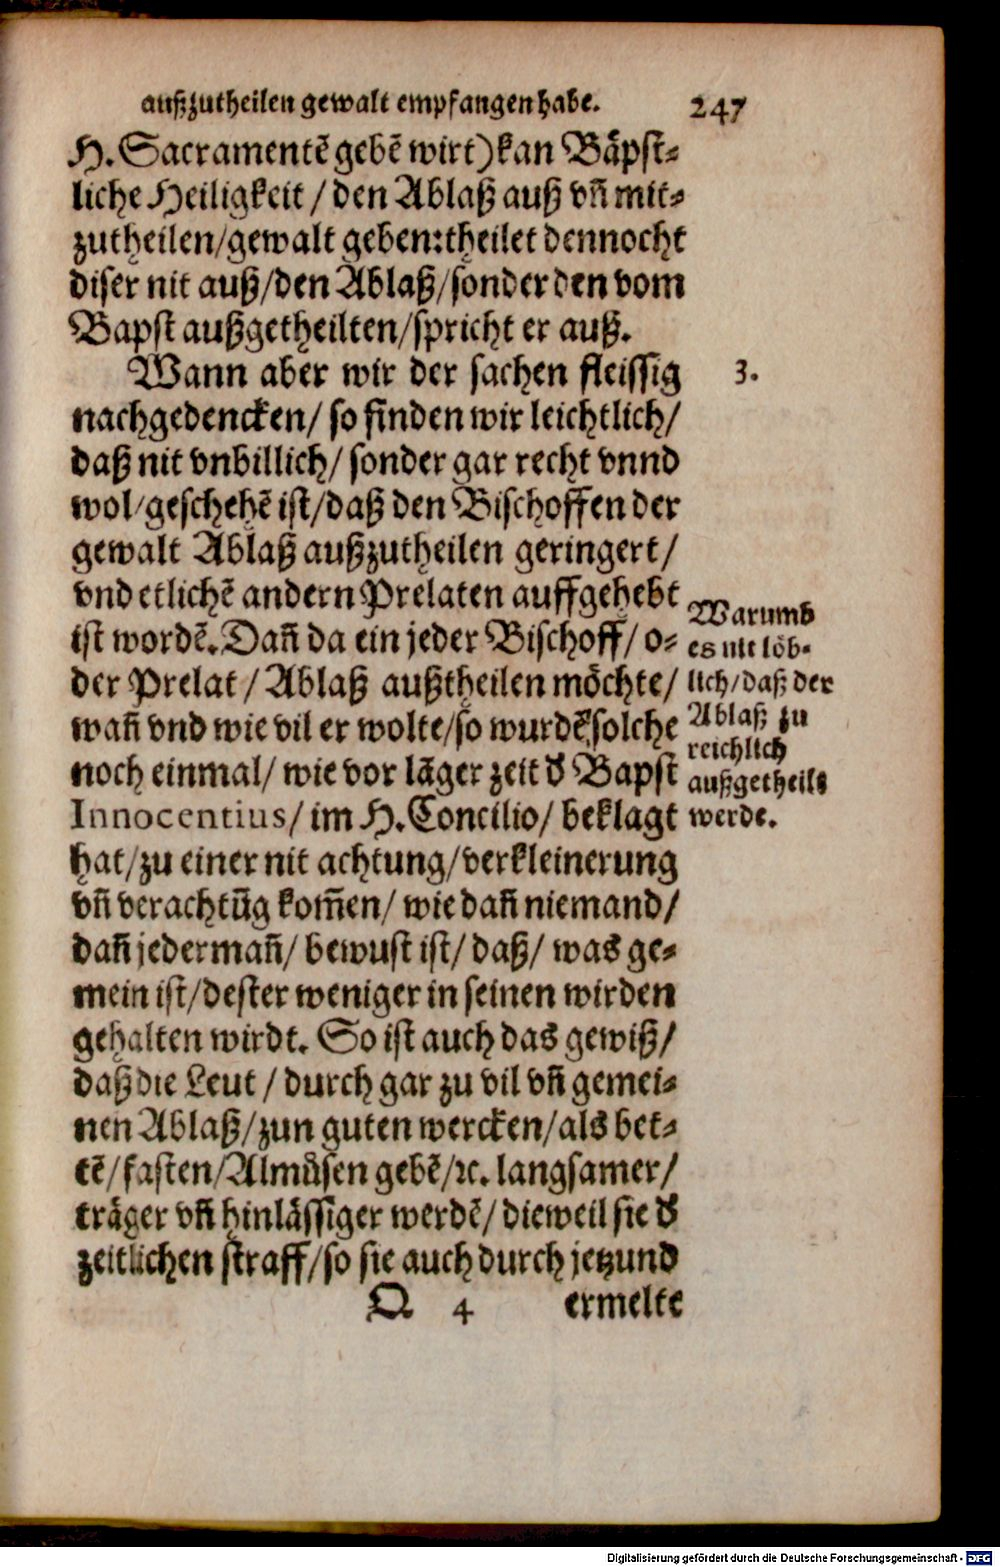 außzutheilen gewalt empfangen habe. 247
H. Sacramentẽ gebẽ wirt) kan Bäpst-
liche Heiligkeit / den Ablaß auß vñ mit-
zutheilen/gewalt geben: theilet dennocht
diser nit auß/den Ablaß/sonder den vom
Bapst außgetheilten/spricht er auß.
Wann aber wir der sachen fleissig
3.
nachgedencken/ so finden wir leichtlich/
daß nit vnbillich/ sonder gar recht vnnd
wol/geschehẽ ist/daß den Bischoffen der
gewalt Ablaß außzutheilen geringert/
vnd etlichẽ andern Prelaten auffgehebt
ist wordẽ. Dañ da ein jeder Bischoff/ o-
der Prelat / Ablaß außtheilen möchte/
wañ vnd wie vil er wolte/so wurdẽ solche
noch einmal/ wie vor lãger zeit d' Bapst
Innocentius/ im H. Concilio/ beklagt
hat/zu einer nit achtung/verkleinerung
vñ verachtũg kom̃en/ wie dañ niemand/
dañ jedermañ/ bewust ist/ daß/ was ge-
mein ist/dester weniger in seinen wirden
gehalten wirdt. So ist auch das gewiß/
daß die Leut / durch gar zu vil vñ gemei-
nen Ablaß/zun guten wercken/als bet-
tẽ/fasten/Almůsen gebẽ/ꝛc. langsamer/
träger vñ hinlässiger werdẽ/ dieweil sie d'
zeitlichen straff/so sie auch durch jetzund
Q 4 ermelte
Warumb
es nit löb-
lich/daß der
Ablaß zu
reichlich
außgetheilt
werde.
Digitalisierung gefördert durch die Deutsche Forschungsgemeinschaft - DFG